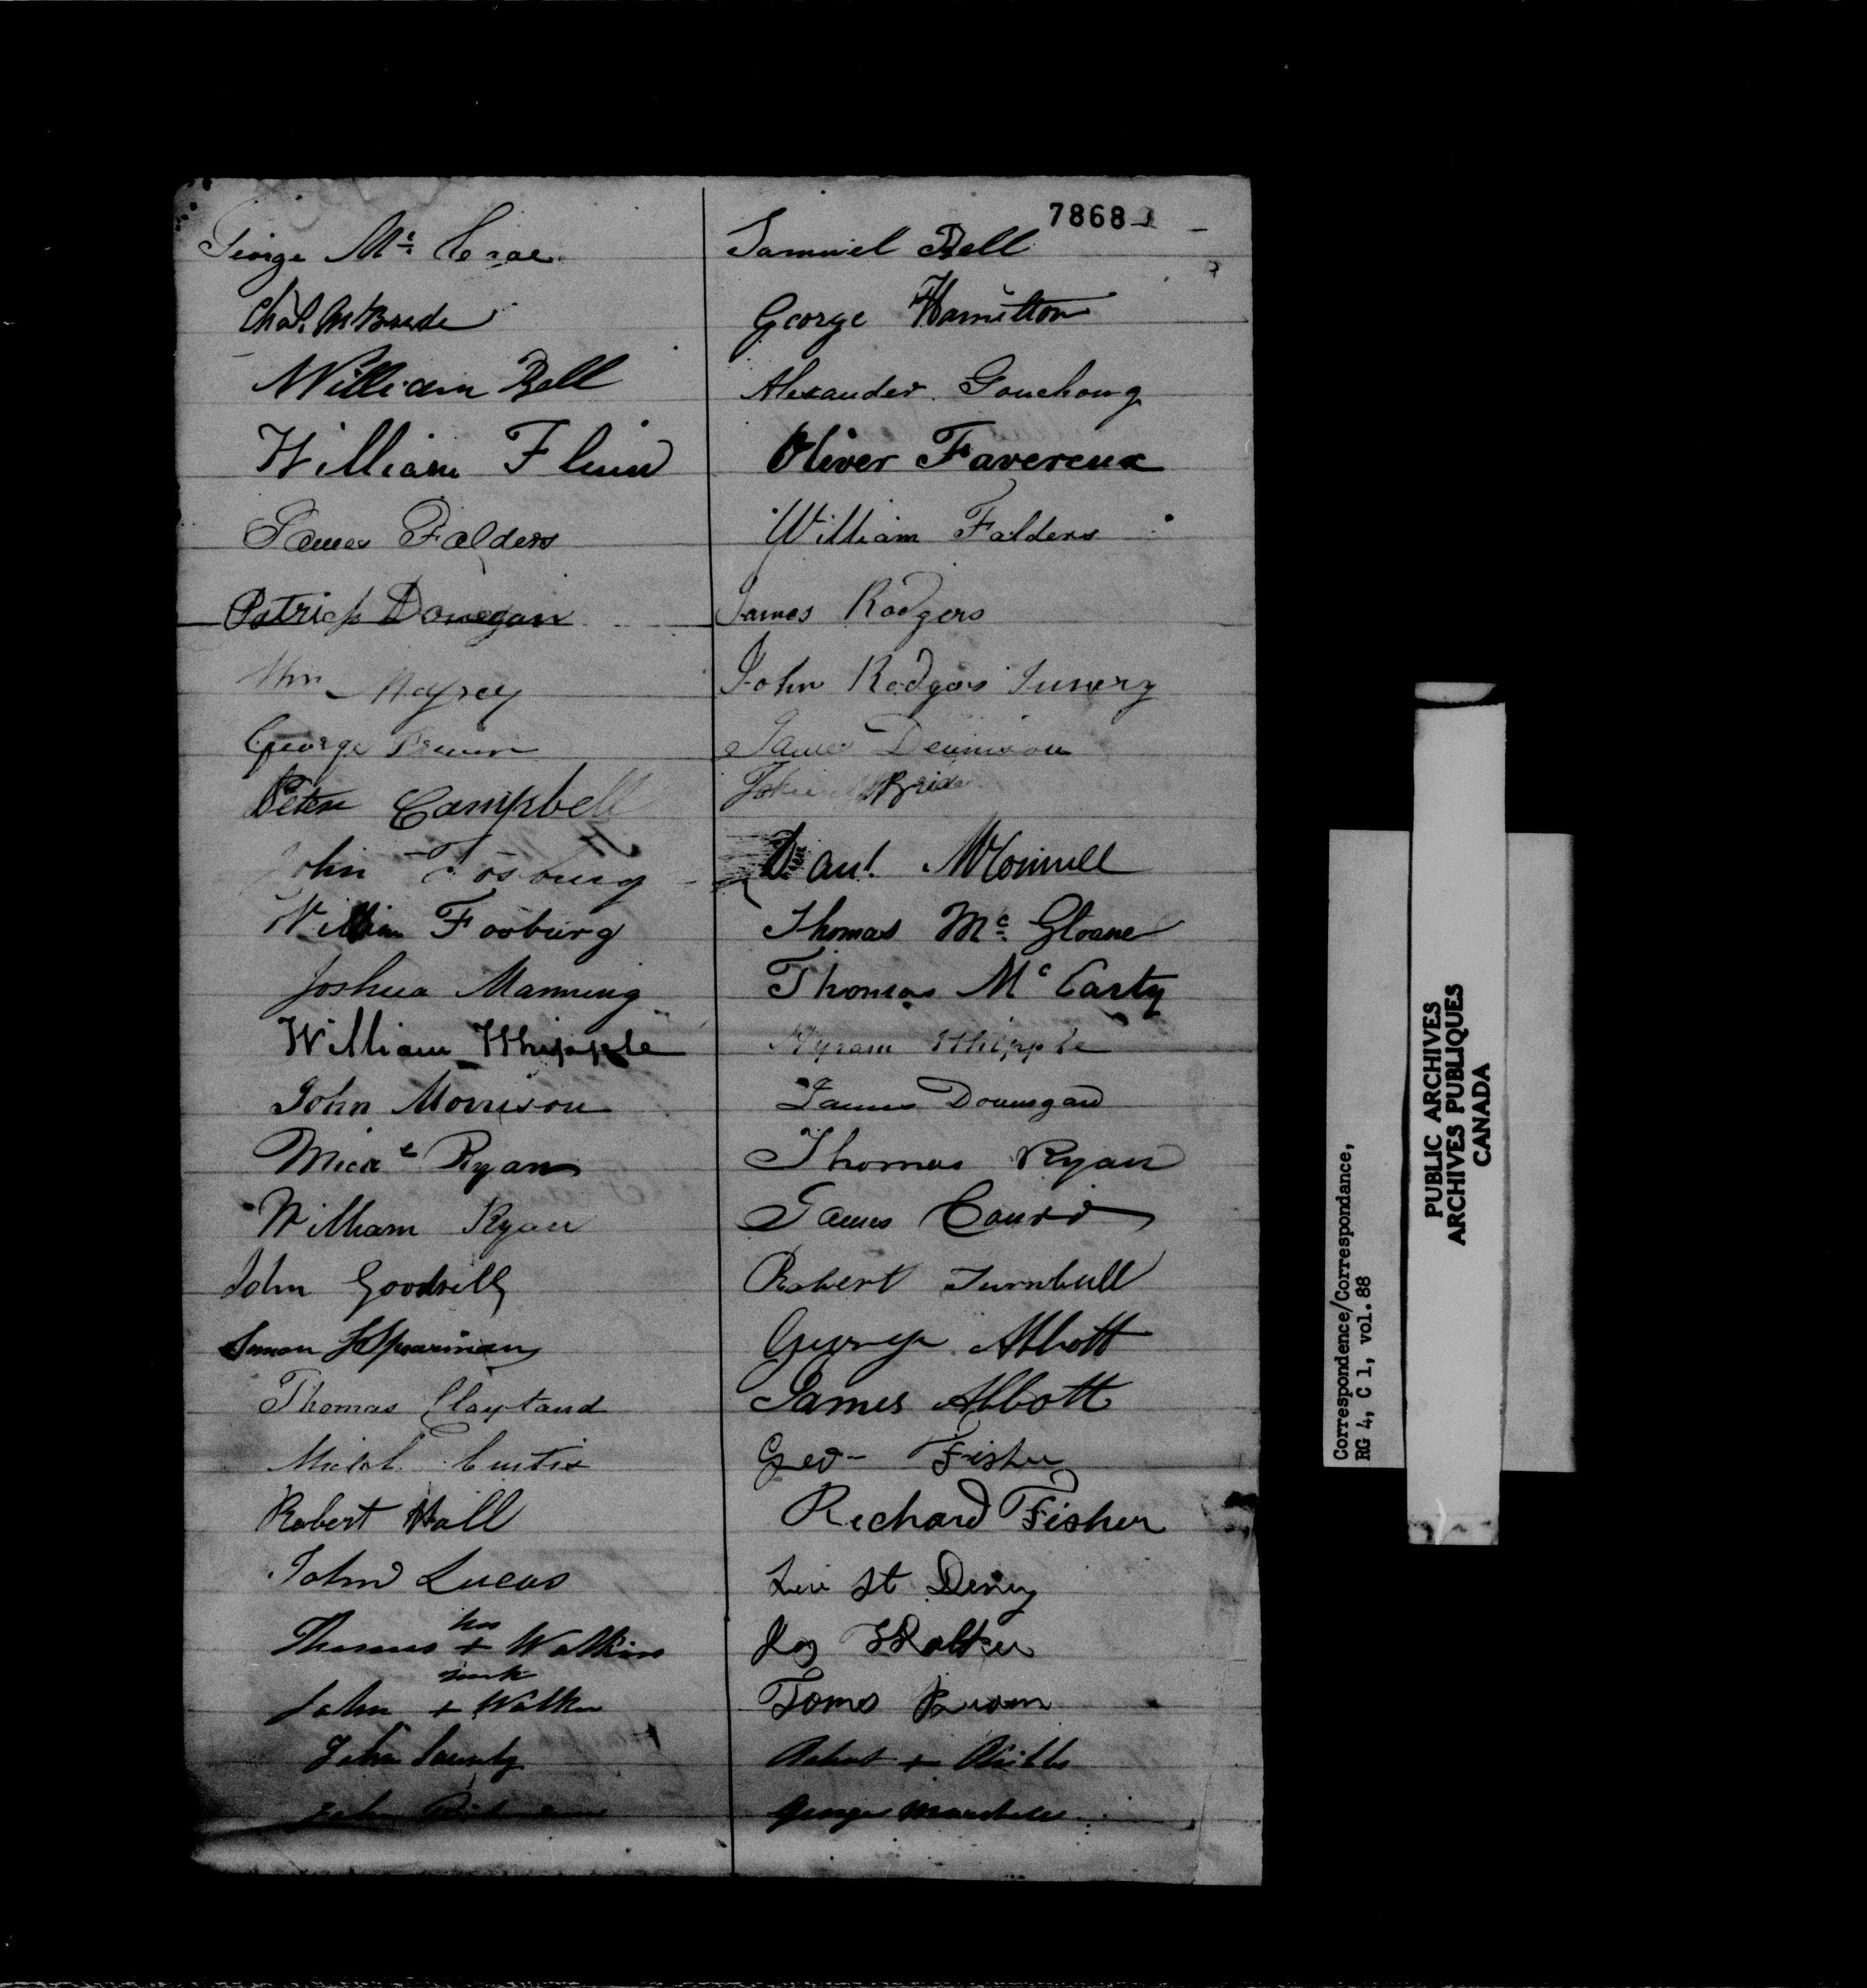 7868
George Mc Crae
Chas. McBride
William Bell
William Flinn
James Falders
Patrick Donegan
Wm
George Brown
Peter Campbell
John Fosburg
William Fosburg
Joshua Manning
William Whipple
John Morrison
Mical Ryan
William Ryan
John Goodwill
Simon Spearman
Thomas Claytand
Michl. Curtis
Robert Hall
John Lucas
his
Thomas + Watkins
mark
John + Walker
John
John
Samuel Bell
George Hamilton
Alexander Gouchong
Oliver Favereux
William Falders
James Rodgers
John Rodgers
James Dennison
John McBride
Danl. McConnell
Thomas Mc Gloane
Thomas Mc Carty
Hyram Whipple
James Dounegan
Thomas Ryan
James
Robert Turnbull
George Abbott
James Abbott
Geo Fisher
Richard Fisher
St Deny
Walker
Toms Brown
Robert +
George Marshall
Correspondence/Correspondance,
RG 4, C 1, vol. 88
PUBLIC ARCHIVES
ARCHIVES PUBLIQUES
CANADA